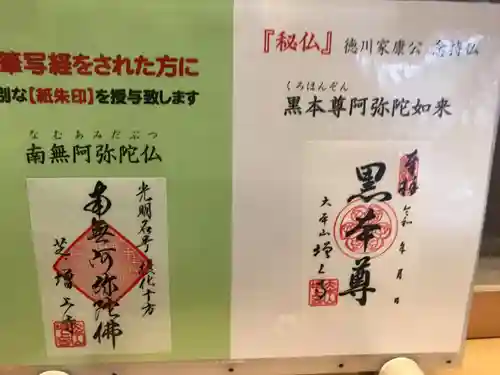 筆写経をされた方に
別な【紙朱印】を授与致します
なむあみだぶつ
南無阿弥陀仏
光明名号摂化十方
南無阿弥陀佛
芝増上寺
『秘仏』徳川家康公 念持仏
くろほんぞん
黒本尊阿弥陀如来
奉拝
令和 年 月 日
黒本尊
大本山増上寺